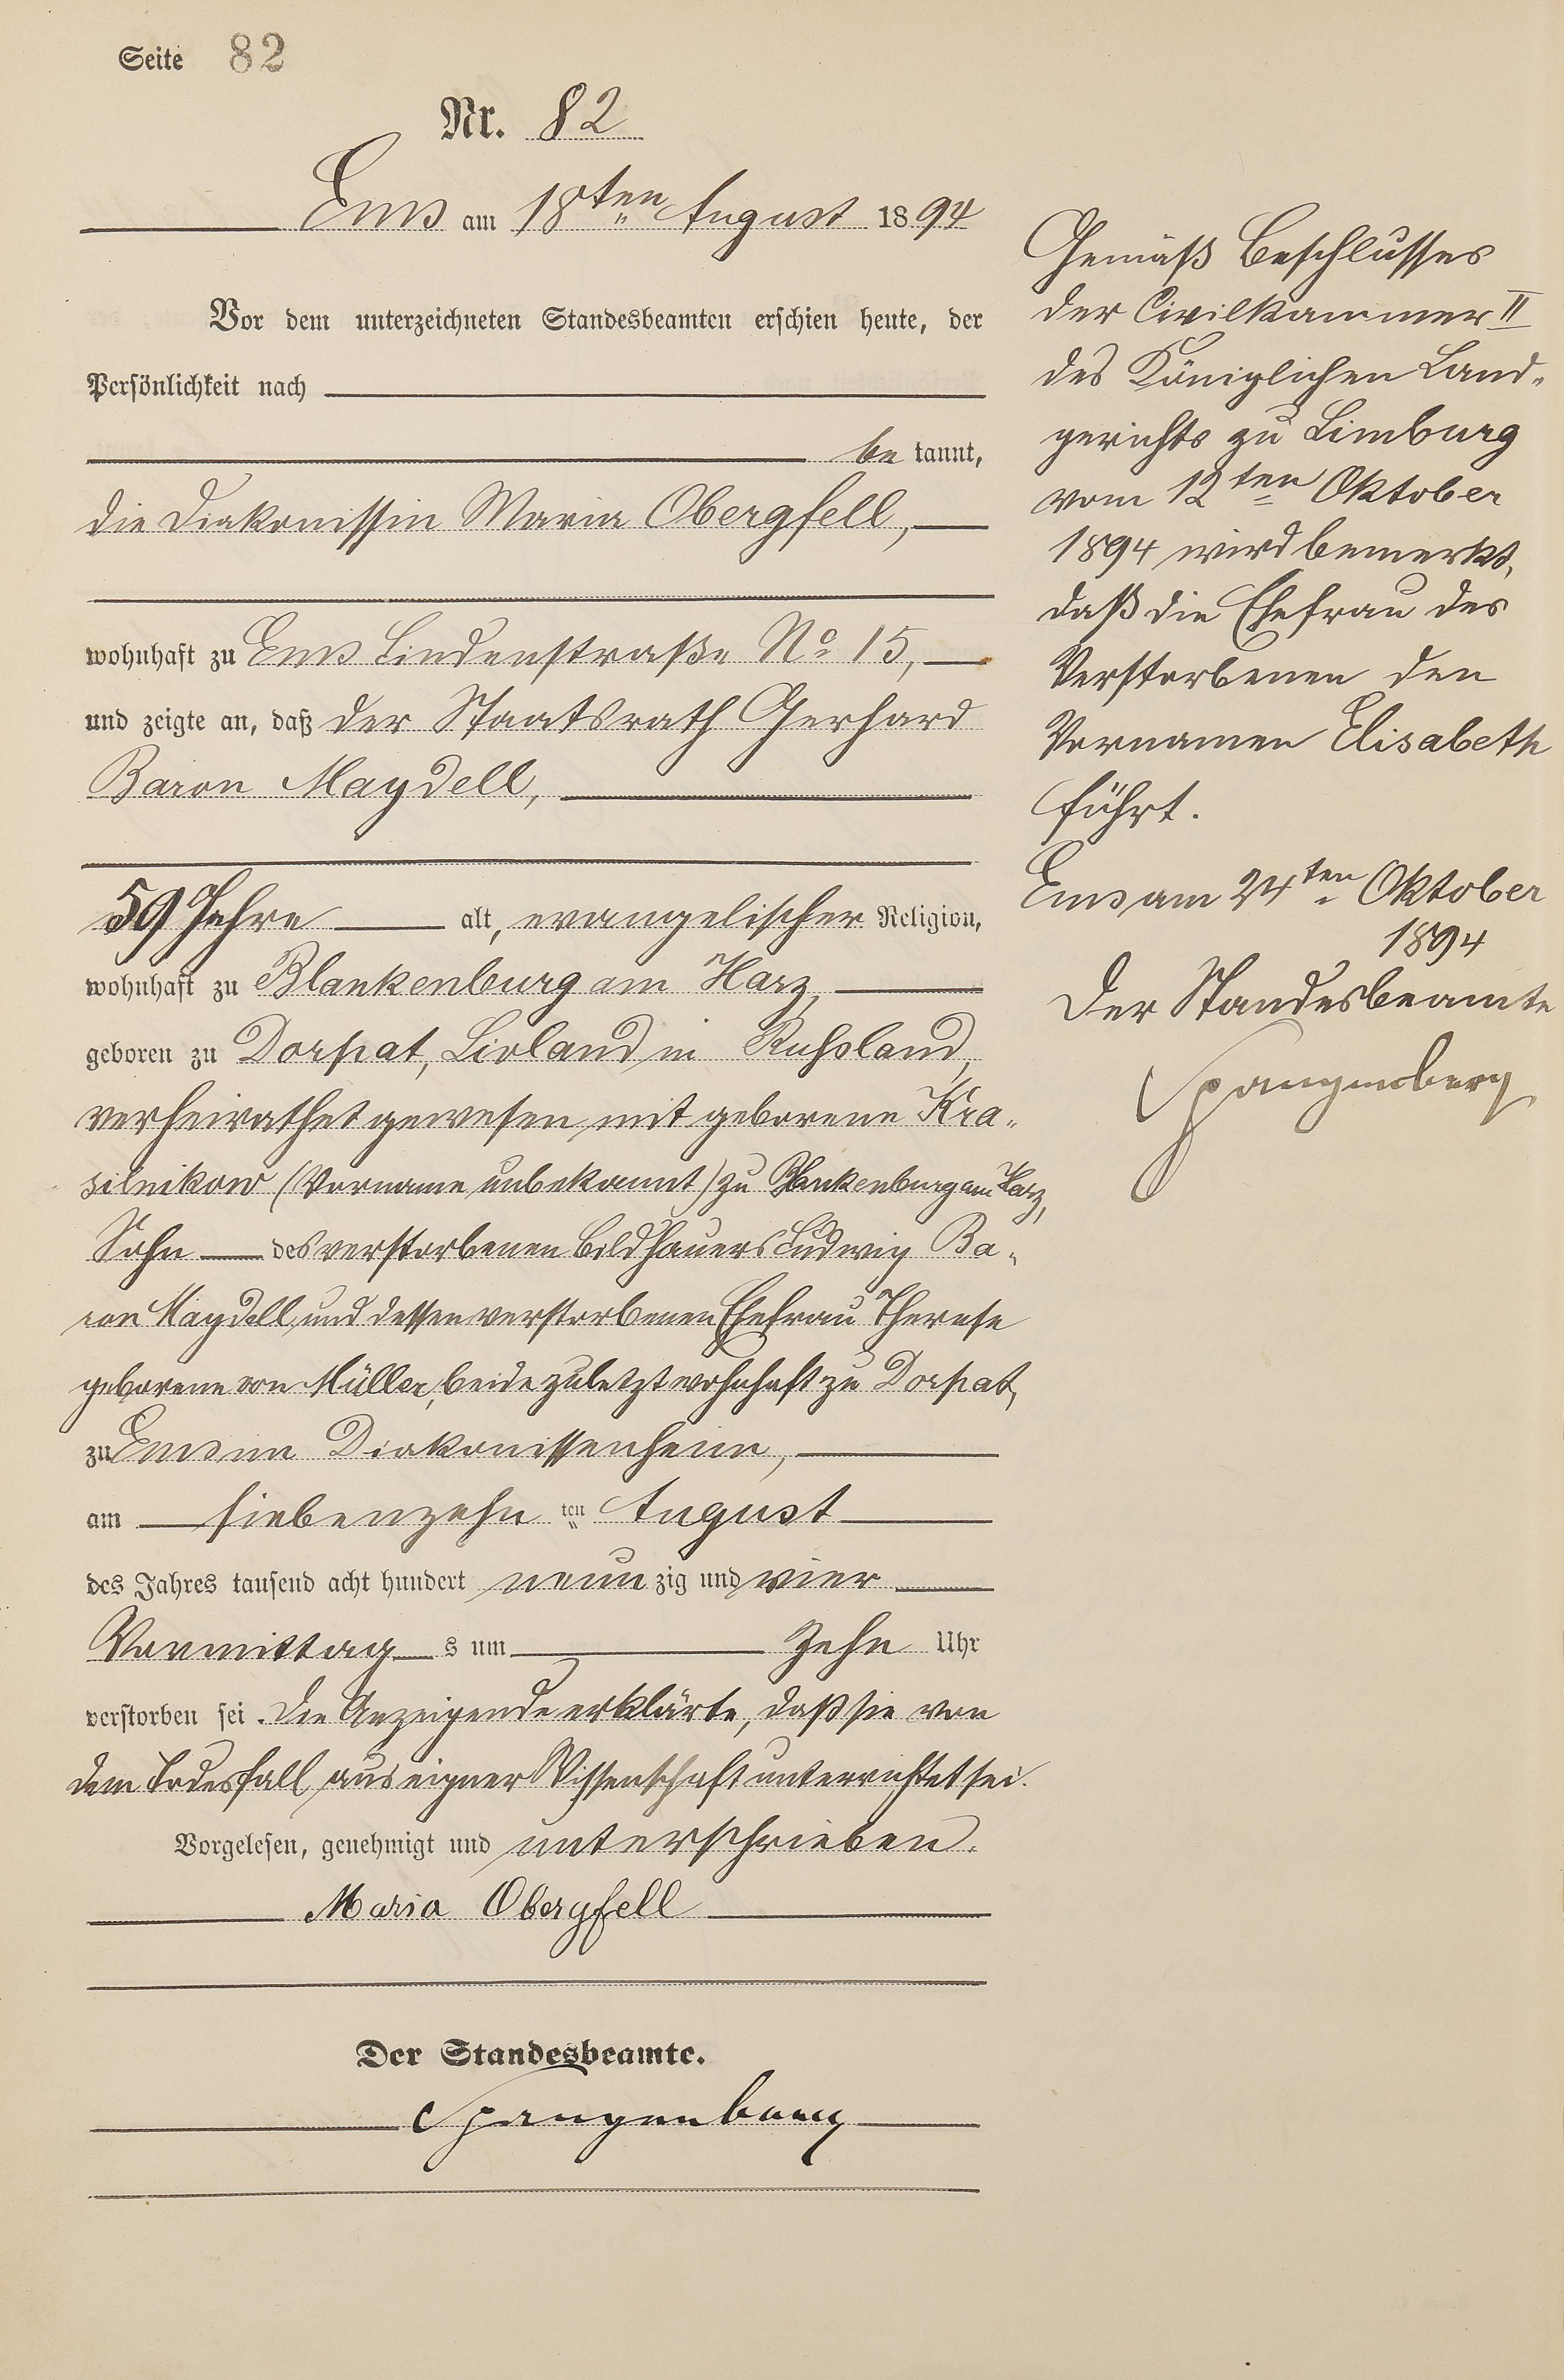 Seite 82
Nr. 82
Ems am 18ten August 1894
Vor dem unterzeichneten Standesbeamten erschien heute, der
Persönlichkeit nach
be kannt,
die Diakonissin Maria Obergfell,
wohnhaft zu Ems Lindenstraße No 15,
und zeigte an, daß der Staatsrath Gerhard
Baron Maydell,
59 Jahre alt, evangelischer Religion,
wohnhaft zu Blankenburg am Harz,
geboren zu Dorpat, Livland in Rußland,
verheirathet gewesen mit geborene Kra-
silnikow (Vorname unbekannt) zu Blankenburg am Harz,
Sohn des verstorbenen Bildhauers Ludwig Ba-
ron Maydell, und dessen verstorbenen Ehefrau Therese
geborene von Müller, beide zuletzt wohnhaft zu Dorpat,
zu Ems im Diakonissenheim,
am siebenzehn ten August
des Jahres tausend acht hundert neun zig und vier
Vormittag s um zehn Uhr
verstorben sei. Die Anzeigende erklärte, daß sie von
dem Todesfall aus eigner Wissenschaft unterrichtet sei.
Vorgelesen, genehmigt und unterschrieben.
Maria Obergfell
Der Standesbeamte.
Spangenberg
Gemäß Beschlusses
der Civilkammer II
des Königlichen Land-
gerichts zu Limburg
vom 12ten Oktober
1894 wird bemerkt,
daß die Ehefrau des
Verstorbenen den
Vornamen Elisabeth
führt.
Ems am 24ten Oktober
1894
Der Standesbeamte
Spangenberg